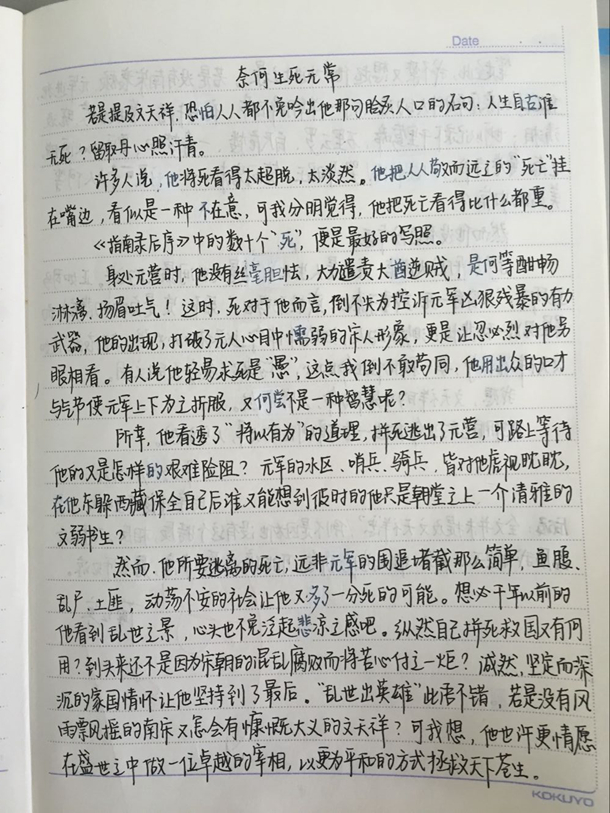 Date
奈何生死无常
若是提及文天祥，恐怕人人都不免吟出他那句脍炙人口的名句：人生自古谁
无死？留取丹心照汗青。
许多人说，他将死看得太超脱，太淡然。他把人人敬而远之的“死亡”挂
在嘴边，看似是一种不在意，可我分明觉得，他把死亡看得比什么都重。
《指南录后序》中的数十个“死”，便是最好的写照。
身处元营时，他没有丝毫胆怯，大力谴责大酋逆贼，是何等酣畅
淋漓、扬眉吐气！这时，死对于他而言，倒不失为控诉元军凶狠残暴的有力
武器，他的出现，打破了元人心目中懦弱的宋人形象，更是让忽必烈对他另
眼相看。有人说他轻易求死是“愚”，这点我倒不敢苟同，他用出众的口才
与气节使元军上下为之折服，又何尝不是一种智慧呢？
所幸，他看透了“将以有为”的道理，拼死逃出了元营，可路上等待
他的又是怎样的艰难险阻？元军的水区、哨兵、骑兵，皆对他虎视眈眈，
在他东躲西藏保全自己后谁又能想到彼时的他只是朝堂之上一介清雅的
文弱书生？
然而，他所要逃离的死亡，远非元军的围追堵截那么简单，鱼腹、
乱尸、土匪，动荡不安的社会让他又多了一分死的可能。想必千年以前的
他看到乱世之景，心头也不免泛起悲凉之感吧。纵然自己拼死救国又有何
用？到头来还不是因为宋朝的混乱腐败而将苦心付之一炬？诚然，坚定而深
沉的家国情怀让他坚持到了最后。“乱世出英雄”此语不错，若是没有风
雨飘风摇的南宋又怎会有慷慨大义的文天祥？可我想，他也许更情愿
在盛世之中做一位卓越的宰相，以更为平和的方式拯救天下苍生。
KOKUYO